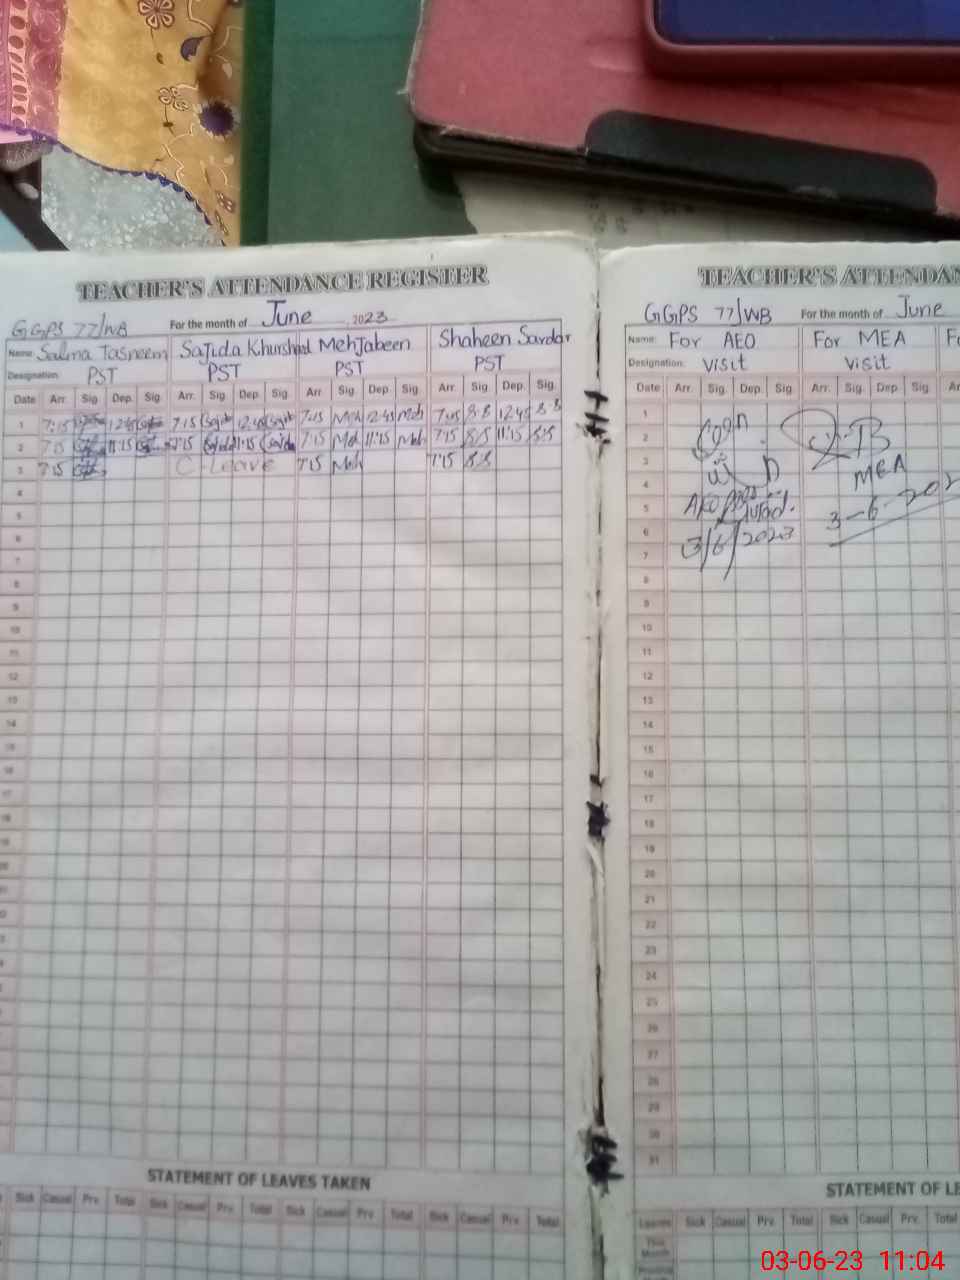 TEACHER'S ATTENDANCE REGISTER
GGPS 77/WB For the month of June 2023
Name: Salma Tasneem Sajida Khursheed Mehjabeen Shaheen Sardar
Designation: PST PST PST PST
Date Arr. Sig. Dep. Sig. Arr. Sig. Dep. Sig. Arr. Sig. Dep. Sig. Arr. Sig. Dep. Sig.
1 7:15 12:45 7:15 Sajida 12:45 Sajida 7:15 Meh 12:45 Meh 7:15 S.S 12:45 S.S
2 7:15 11:15 7:15 Sajida 11:15 Sajida 7:15 Meh 11:15 Meh 7:15 S.S 11:15 S.S
3 7:15 C - Leave 7:15 Meh 7:15 S.S
4
5
6
7
8
9
10
11
12
13
14
15
16
17
18
19
20
21
STATEMENT OF LEAVES TAKEN
Sick Casual Prv. Total Sick Casual Prv. Total Sick Casual Prv. Total Sick Casual Prv. Total
TEACHER'S ATTENDAN
GGPS 77/WB For the month of June
Name: For AEO For MEA Fo
Designation: visit visit
Date Arr. Sig. Dep. Sig. Arr. Sig. Dep. Sig. Ar
1
2
3
4 MEA
5 AEO 3-6-202
6 3/6/2023
7
8
9
10
11
12
13
14
15
16
17
18
19
20
21
22
23
24
25
26
27
28
29
30
31
STATEMENT OF LE
Leaves Sick Casual Prv. Total Sick Casual Prv. Total
This Month
03-06-23 11:04